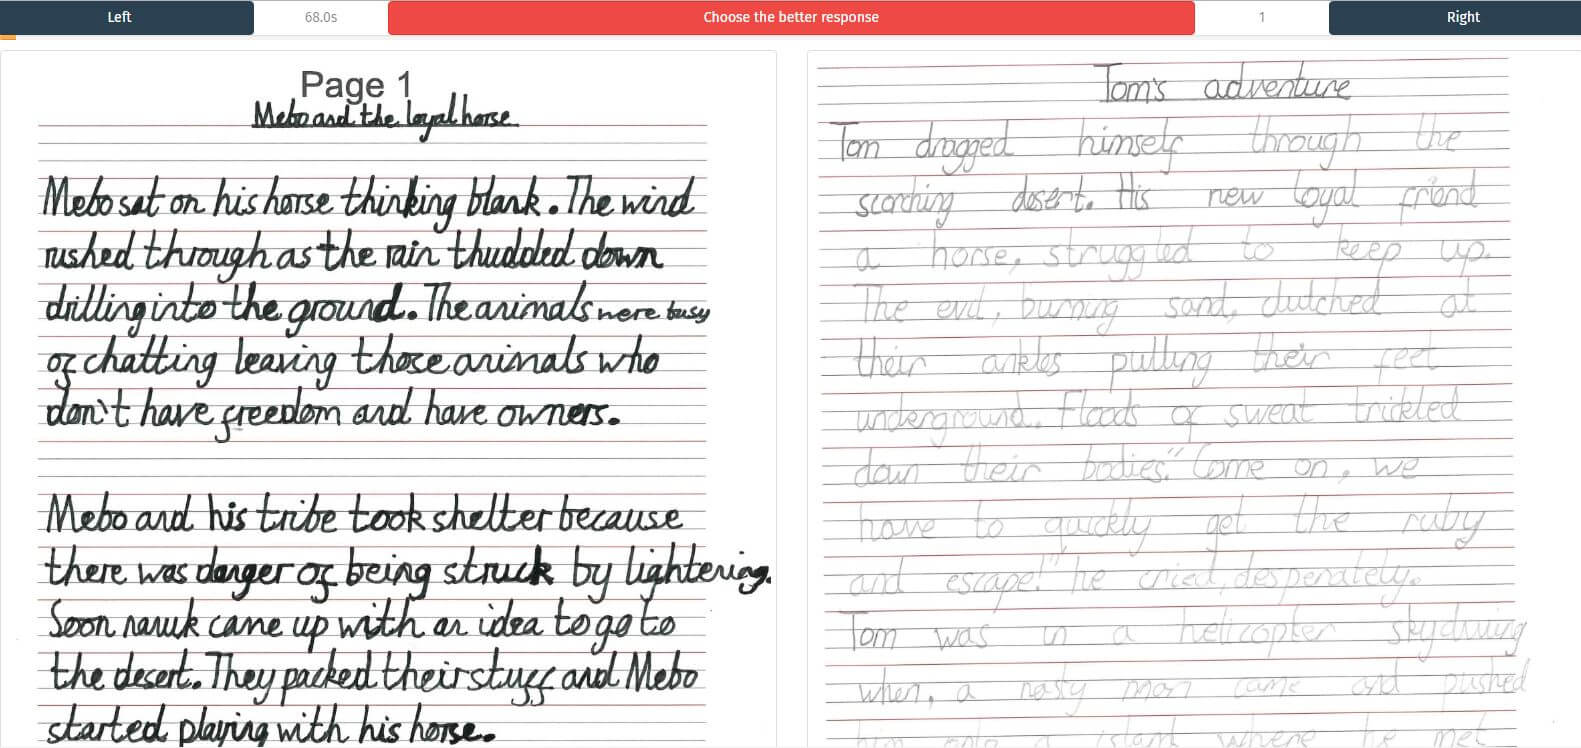 Left
68.0s
Choose the better response
1
Right
Page 1
Mebo and the loyal horse
Mebo sat on his horse thinking blank. The wind
rushed through as the rain thudded down
drilling into the ground. The animals were busy
of chatting leaving those animals who
don't have freedom and have owners.
Mebo and his tribe took shelter because
there was danger of being struck by lightering.
Soon naruk came up with an idea to go to
the desert. They packed their stuff and Mebo
started playing with his horse.
Tom's adventure
Tom dragged himself through the
scorching desert. His new loyal friend
a horse, struggled to keep up.
The evil, burning sand, clutched at
their ankles pulling their feet
underground. Floods of sweat trickled
down their bodies. "Come on, we
have to quickly get the ruby
and escape!" he cried, desperately.
Tom was in a helicopter skydiving
when, a nasty man came and pushed
him onto a island where he met